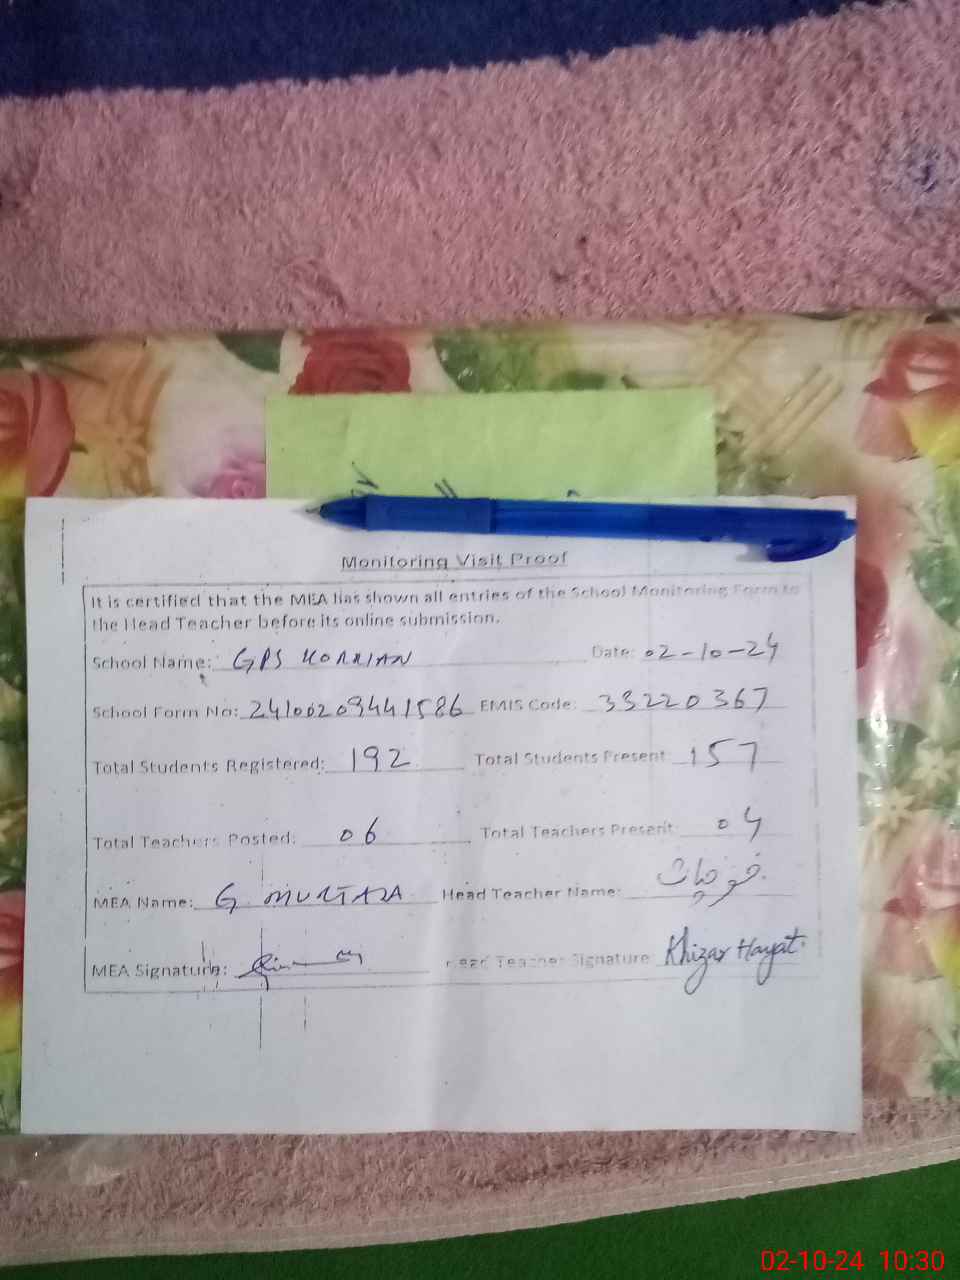 Monitoring Visit Proof
It is certified that the MEA has shown all entries of the School Monitoring Form to
the Head Teacher before its online submission.
School Name: GPS Date: 02-10-24
School Form No: 24100209441586 EMIS Code: 33220367
Total Students Registered: 192 Total Students Present: 157
Total Teachers Posted: 06 Total Teachers Present: 04
MEA Name: G. MURTAZA Head Teacher Name: خضر حیات
MEA Signature: Head Teacher Signature Khizar Hayat
02-10-24 10:30